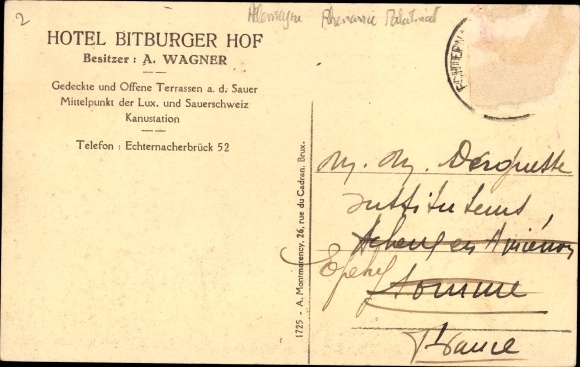 2
Allemagne Rhenanie Palatinat
HOTEL BITBURGER HOF
Besitzer : A. WAGNER
Gedeckte und Offene Terrassen a. d. Sauer
Mittelpunkt der Lux. und Sauerschweiz
Kanustation
Telefon : Echternacherbrück 52
1725 - A. Montmorency, 26, rue du Cadran, Brux.
ECHTERNA
M. M. Dorquette
Instituteurs
Acheux en Amiénois
Epehy
Somme
France